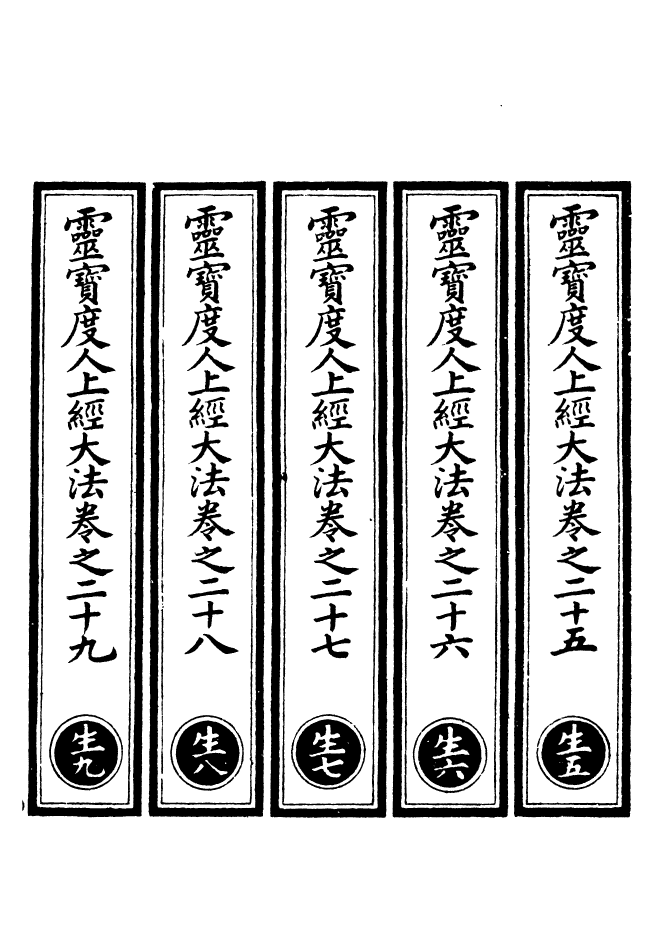 靈寶度人上經大法卷之二十五
生五
靈寶度人上經大法卷之二十六
生六
靈寶度人上經大法卷之二十七
生七
靈寶度人上經大法卷之二十八
生八
靈寶度人上經大法卷之二十九
生九